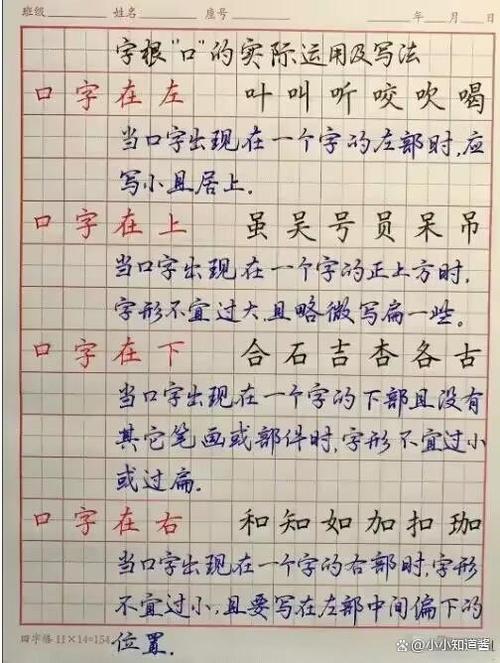 班级 姓名 座号 年 月 日
字根“口”的实际运用及写法
口字在左 叶叫听咬吹喝
当口字出现在一个字的左部时,应
写小且居上.
口字在上 虽吴号员呆吊
当口字出现在一个字的正上方时,
字形不宜过大且略微写扁一些。
口字在下 合石吉杏各古
当口字出现在一个字的下部且没有
其它笔画或部件时,字形不宜过小
或过扁.
口字在右 和知如加扣珈
当口字出现在一个字的右部时,字形
不宜过小,且要写在左部中间偏下的
位置.
田字格 11×14=154
@小小知道酱